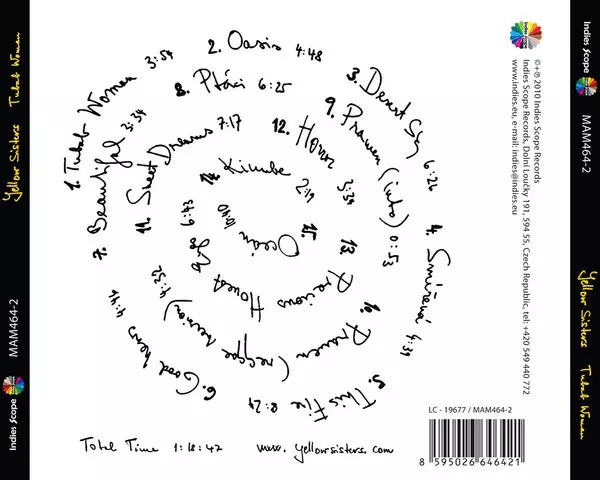 Yellow Sisters Tubab Woman
MAM464-2
Indies Scope
1. Tubab Woman 3:54
2. Oasis 4:48
3. Desert Sky 6:26
4. Smíření
5. This Fire 8:24
6. Good news 4:44
7. Beautiful 3:34
8. Ptáci 6:25
9. Pramen (intro) 0:53
10. Pramen (reggae version) 4:32
11. Sweet Dreams 7:17
12.
13. Precious Honest 6:43
14. 2:19
15. Oceán 10:10
Total Time 1:18:42
www.yellowsisters.com
Indies Scope
©+℗ 2010 Indies Scope Records
Indies Scope Records, Dolní Loučky 191, 594 55, Czech Republic, tel: +420 549 440 772
www.indies.eu, e-mail: indies@indies.eu
LC - 19677 / MAM464-2
8 595026 646421
Indies Scope
MAM464-2
Yellow Sisters Tubab Woman